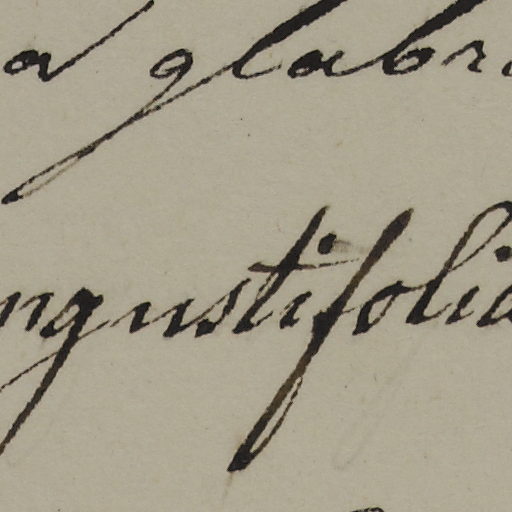 a glabr
ngustifolia